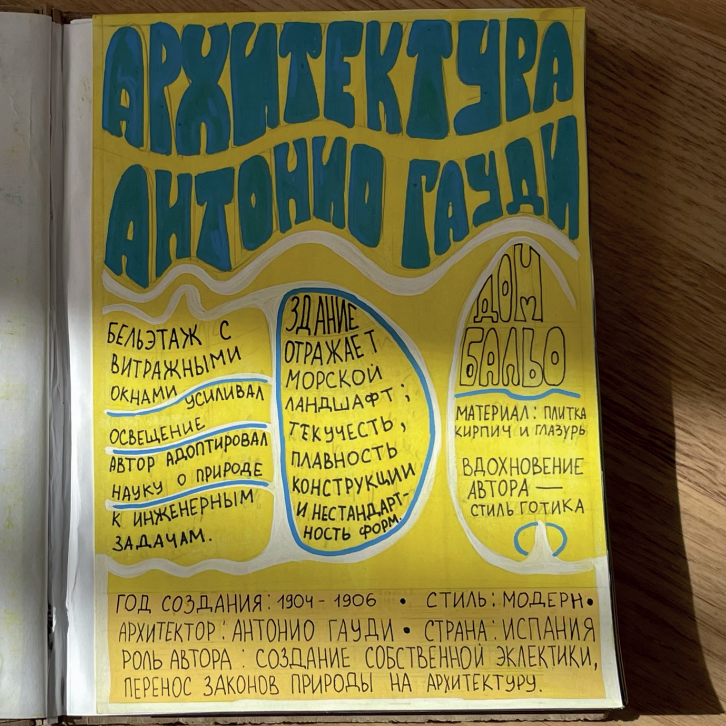 АРХИТЕКТУРА
АНТОНИО ГАУДИ
БЕЛЬЭТАЖ С
ВИТРАЖНЫМИ
ОКНАМИ УСИЛИВАЛ
ОСВЕЩЕНИЕ
АВТОР АДОПТИРОВАЛ
НАУКУ О ПРИРОДЕ
К ИНЖЕНЕРНЫМ
ЗАДАЧАМ.
ЗДАНИЕ
ОТРАЖАЕТ
МОРСКОЙ
ЛАНДШАФТ;
ТЕКУЧЕСТЬ,
ПЛАВНОСТЬ
КОНСТРУКЦИИ
И НЕСТАНДАРТ-
НОСТЬ ФОРМ.
ДОМ
БАЛЬО
МАТЕРИАЛ: ПЛИТКА
КИРПИЧ И ГЛАЗУРЬ
ВДОХНОВЕНИЕ
АВТОРА —
СТИЛЬ ГОТИКА
ГОД СОЗДАНИЯ: 1904 - 1906 • СТИЛЬ: МОДЕРН •
АРХИТЕКТОР: АНТОНИО ГАУДИ • СТРАНА: ИСПАНИЯ
РОЛЬ АВТОРА: СОЗДАНИЕ СОБСТВЕННОЙ ЭКЛЕКТИКИ,
ПЕРЕНОС ЗАКОНОВ ПРИРОДЫ НА АРХИТЕКТУРУ.